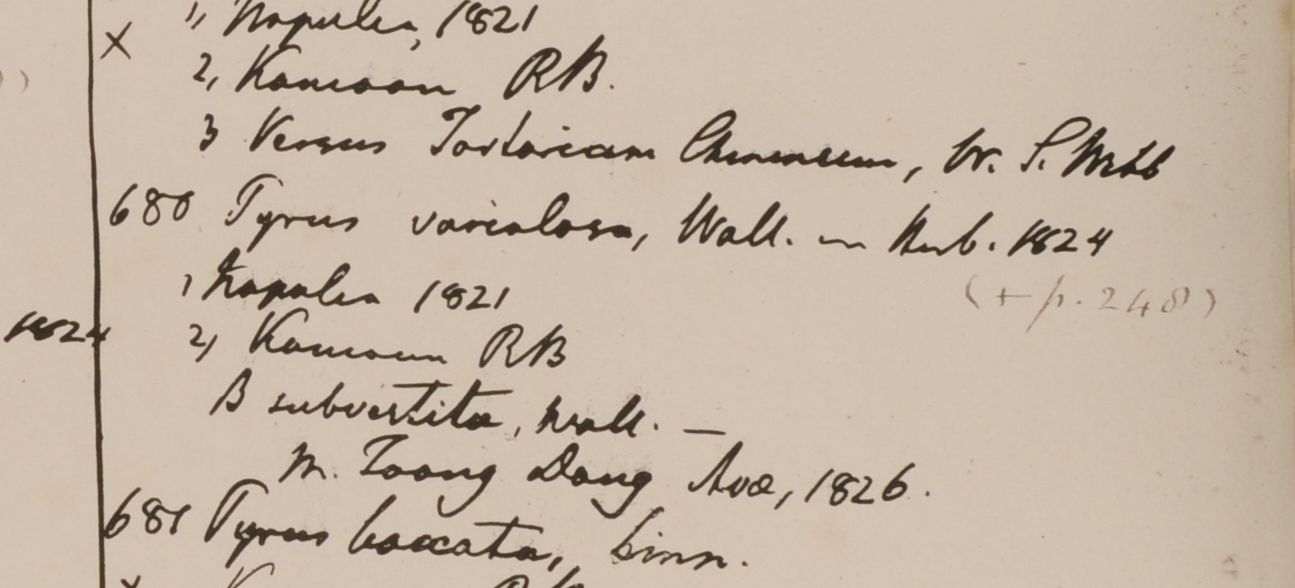 1, Napulia, 1821
×
2, Kamaon RB.
3 Versus Tartariam Chinensem, W. S. Webb
680 Pyrus variolosa, Wall. in Herb. 1824
1 Napalia 1821
(+ p. 248)
1824 2, Kamaon RB
B subvestita, Wall. —
M. Toong Dong Ava, 1826.
681 Pyrus baccata, Linn.